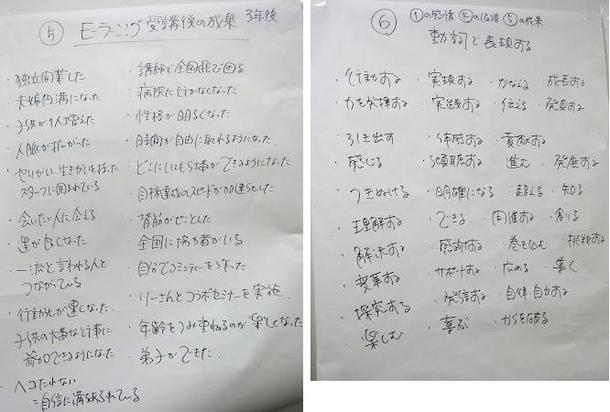 ⑤ E-ラーニング受講後の成果 3年後
・独立開業した
・夫婦円満になった
・子供が1人で寝た
・人脈が拡がった
・やりがい、生きがいを持った
スタッフに囲まれている
・会いたい人に会える
・運が良くなった
・一流と言われる人と
つながっている
・行動が速くなった
・子供の大事な行事に
参加できるようになった
・ヘコたれない
=自信に満ちあふれている
・講師で全国飛び回る
・病院に行かなくなった
・性格が明るくなった
・時間が自由に取れるようになった
・どこにいても仕事ができるようになった
・目標達成のスピードが加速した
・背筋がピンとした
・全国に協力者がいる
・自分でコミュニティーを作った
・りーさんとコラボセミナーを実施
・年齢をつみ重ねるのが楽しくなった
・弟子ができた
⑥ ①の感情 ②の ⑤の成果
動詞で表現する
・行動する ・実現する ・かなえる ・成長する
・力を発揮する ・実践する ・伝える ・発見する
・引き出す ・体感する ・貢献する
・感じる ・傾聴する ・進む ・発展する
・つきぬける ・明確になる ・超える ・知る
・理解する ・できる ・前進する ・創る
・解決する ・感謝する ・巻き込む ・挑戦する
・変革する ・サポートする ・広める ・導く
・探究する ・発信する ・自律、自立する
・楽しむ ・喜ぶ ・からを破る